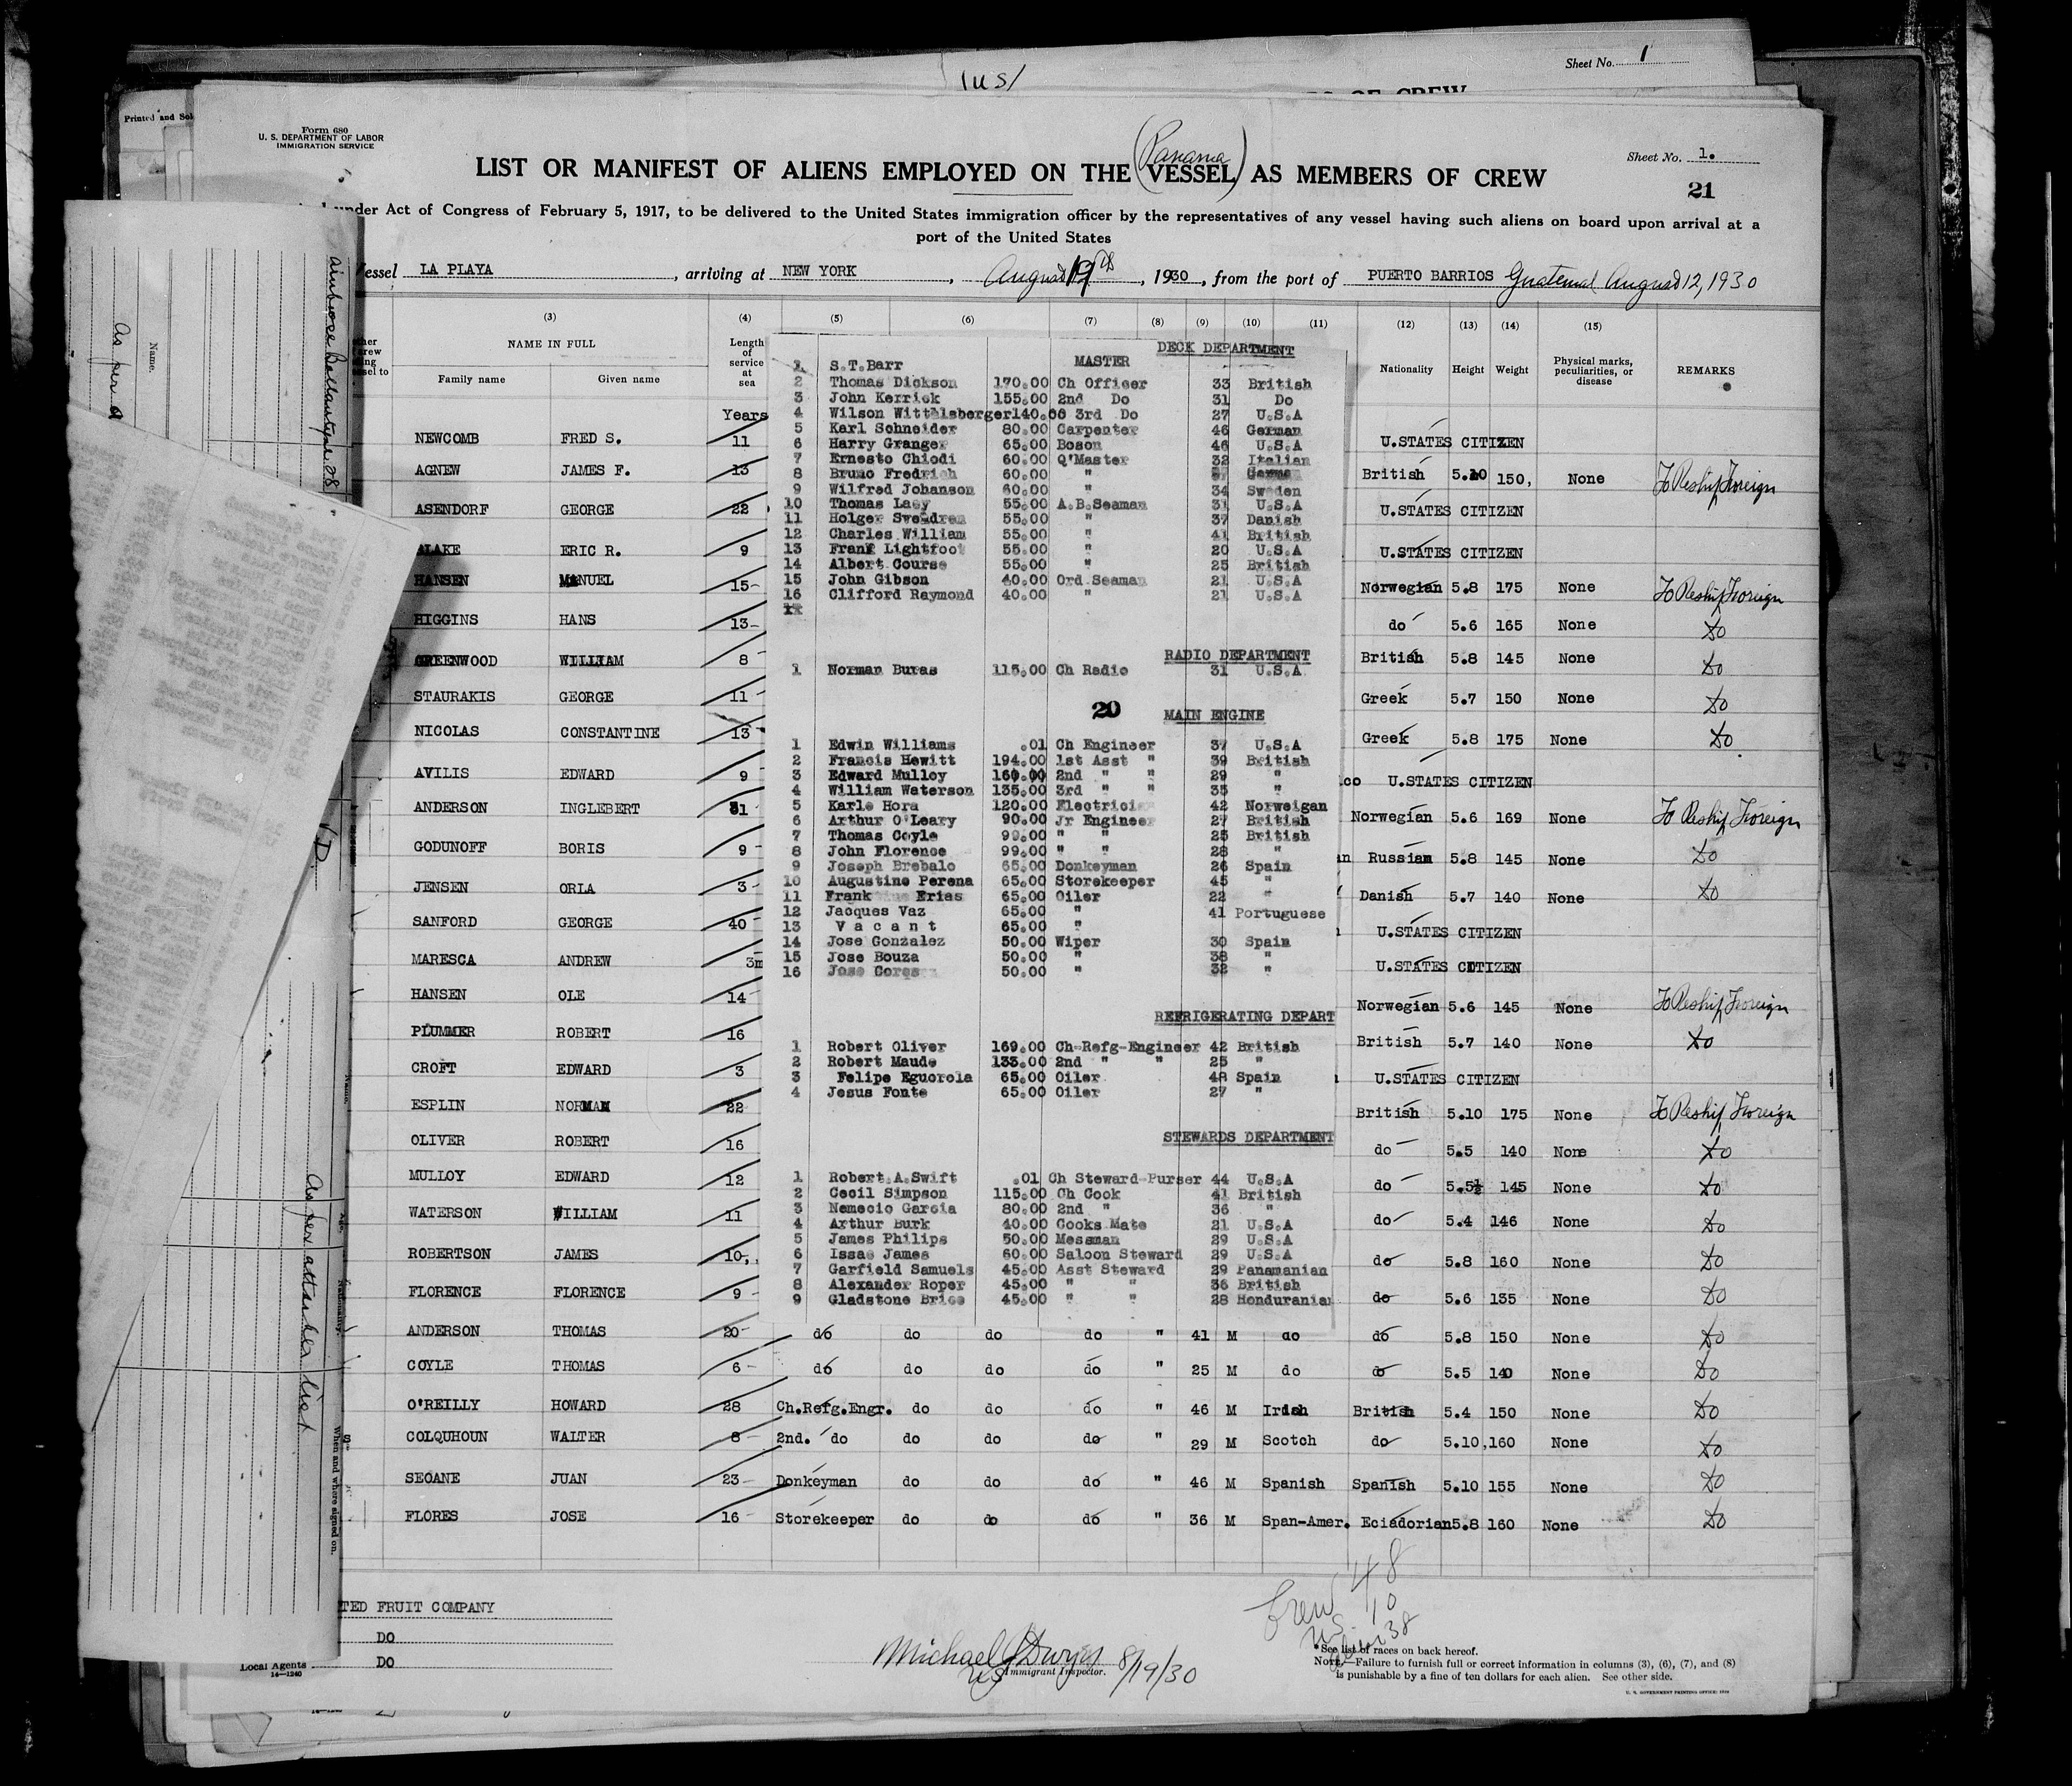 Sheet No. 1
Printed and Sol
Form 680
U. S. DEPARTMENT OF LABOR
IMMIGRATION SERVICE
Sheet No. 1.
(Panama)
LIST OR MANIFEST OF ALIENS EMPLOYED ON THE VESSEL AS MEMBERS OF CREW
21
under Act of Congress of February 5, 1917, to be delivered to the United States immigration officer by the representatives of any vessel having such aliens on board upon arrival at a
port of the United States
essel LA PLAYA, arriving at NEW YORK, August 19th, 1930, from the port of PUERTO BARRIOS Guatemal August 12, 1930
(3) (4) (5) (6) (7) (8) (9) (10) (11) (12) (13) (14) (15)
NAME IN FULL
Family name Given name
Length of service at sea
Nationality Height Weight Physical marks, peculiarities, or disease REMARKS
Years
DECK DEPARTMENT
1 S.T.Barr MASTER
2 Thomas Dickson 170.00 Ch Officer 33 British
3 John Kerrick 155.00 2nd Do 31 Do
4 Wilson Wittelsberger 140.00 3rd Do 27 U.S.A
5 Karl Schneider 80.00 Carpenter 46 German
6 Harry Granger 65.00 Boson 46 U.S.A
7 Ernesto Chiodi 60.00 Q'Master 32 Italian
8 Bruno Fredrich 60.00 "
9 Wilfred Johanson 60.00 " 34 Sweden
10 Thomas Lacy 55.00 A.B.Seaman 31 U.S.A
11 Holger 55.00 " 37 Danish
12 Charles William 55.00 " 41 British
13 Frank Lightfoot 55.00 " 20 U.S.A
14 Albert Course 55.00 " 25 British
15 John Gibson 40.00 Ord Seaman 21 U.S.A
16 Clifford Raymond 40.00 " 21 U.S.A
RADIO DEPARTMENT
1 Norman Buras 115.00 Ch Radio 31 U.S.A
20
MAIN ENGINE
1 Edwin Williams .01 Ch Engineer 37 U.S.A
2 Francis Hewitt 194.00 1st Asst " 39 British
3 Edward Mulloy 160.00 2nd " " 29 "
4 William Waterson 135.00 3rd " " 35 "
5 Karle Hora 120.00 Electrici 42 Norweigan
6 Arthur O'Leary 90.00 Jr Engineer 27 British
7 Thomas Coyle 99.00 " " 25 British
8 John Florence 99.00 " " 28 "
9 Joseph Brebalo 65.00 Donkeyman 26 Spain
10 Augustine Perena 65.00 Storekeeper 45 "
11 Frank Erias 65.00 Oiler 22 "
12 Jacques Vaz 65.00 " 41 Portuguese
13 V a c a n t 65.00 "
14 Jose Gonzalez 50.00 Wiper 30 Spain
15 Jose Bouza 50.00 " 38 "
16 Jose Cores 50.00 " 32 "
REFRIGERATING DEPART
1 Robert Oliver 169.00 Ch-Refg-Engineer 42 British
2 Robert Maude 133.00 2nd " " 25 "
3 Felipe Eguorola 65.00 Oiler 48 Spain
4 Jesus Fonte 65.00 Oiler 27 "
STEWARDS DEPARTMENT
1 Robert.A.Swift .01 Ch Steward-Purser 44 U.S.A
2 Cecil Simpson 115.00 Ch Cook 41 British
3 Nemecio Garcia 80.00 2nd " 36 "
4 Arthur Burk 40.00 Cooks Mate 21 U.S.A
5 James Philips 50.00 Messman 29 U.S.A
6 Issac James 60.00 Saloon Steward 29 U.S.A
7 Garfield Samuels 45.00 Asst Steward 29 Panamanian
8 Alexander Roper 45.00 " " 36 British
9 Gladstone Brice 45.00 " " 28 Honduranian
NEWCOMB FRED S. 11 U.STATES CITIZEN
AGNEW JAMES F. 13 British 5.10 150, None To Reship Foreign
ASENDORF GEORGE 22 U.STATES CITIZEN
BLAKE ERIC R. 9 U.STATES CITIZEN
HANSEN MANUEL 15- Norwegian 5.8 175 None To Reship Foreign
HIGGINS HANS 13- do 5.6 165 None Do
GREENWOOD WILLIAM 8 British 5.8 145 None Do
STAURAKIS GEORGE 11 Greek 5.7 150 None Do
NICOLAS CONSTANTINE 13 Greek 5.8 175 None Do
AVILIS EDWARD 9 co U.STATES CITIZEN
ANDERSON INGLEBERT 31 Norwegian 5.6 169 None To Reship Foreign
GODUNOFF BORIS 9 - n Russian 5.8 145 None Do
JENSEN ORLA 3 - Danish 5.7 140 None Do
SANFORD GEORGE 40 U.STATES CITIZEN
MARESCA ANDREW 3m U.STATES CITIZEN
HANSEN OLE 14 Norwegian 5.6 145 None To Reship Foreign
PLUMMER ROBERT 16 British 5.7 140 None Do
CROFT EDWARD 3 U.STATES CITIZEN
ESPLIN NORMAN 22 British 5.10 175 None To Reship Foreign
OLIVER ROBERT 16 do 5.5 140 None Do
MULLOY EDWARD 12 do 5.5½ 145 None Do
WATERSON WILLIAM 11 do 5.4 146 None Do
ROBERTSON JAMES 10,. do 5.8 160 None Do
FLORENCE FLORENCE 9 - do 5.6 135 None Do
ANDERSON THOMAS 20- do do do do " 41 M do do 5.8 150 None Do
COYLE THOMAS 6 - do do do do " 25 M do do 5.5 140 None Do
O'REILLY HOWARD 28 Ch.Refg.Engr. do do do " 46 M Irish British 5.4 150 None Do
COLQUHOUN WALTER 8 - 2nd. do do do do " 29 M Scotch do 5.10,160 None Do
SEOANE JUAN 23- Donkeyman do do do " 46 M Spanish Spanish 5.10 155 None Do
FLORES JOSE 16 - Storekeeper do do do " 36 M Span-Amer. Eciadorian 5.8 160 None Do
Crew 48
US 10
Alien 38
TED FRUIT COMPANY
DO
Local Agents DO
16-1240
Michael J Dwyer 8/19/30
US Immigrant Inspector.
*See list of races on back hereof.
NOTE.—Failure to furnish full or correct information in columns (3), (6), (7), and (8)
is punishable by a fine of ten dollars for each alien. See other side.
U. S. GOVERNMENT PRINTING OFFICE
Name.
As per a
As per attached list
Age.
Nationality.
When and where signed on.